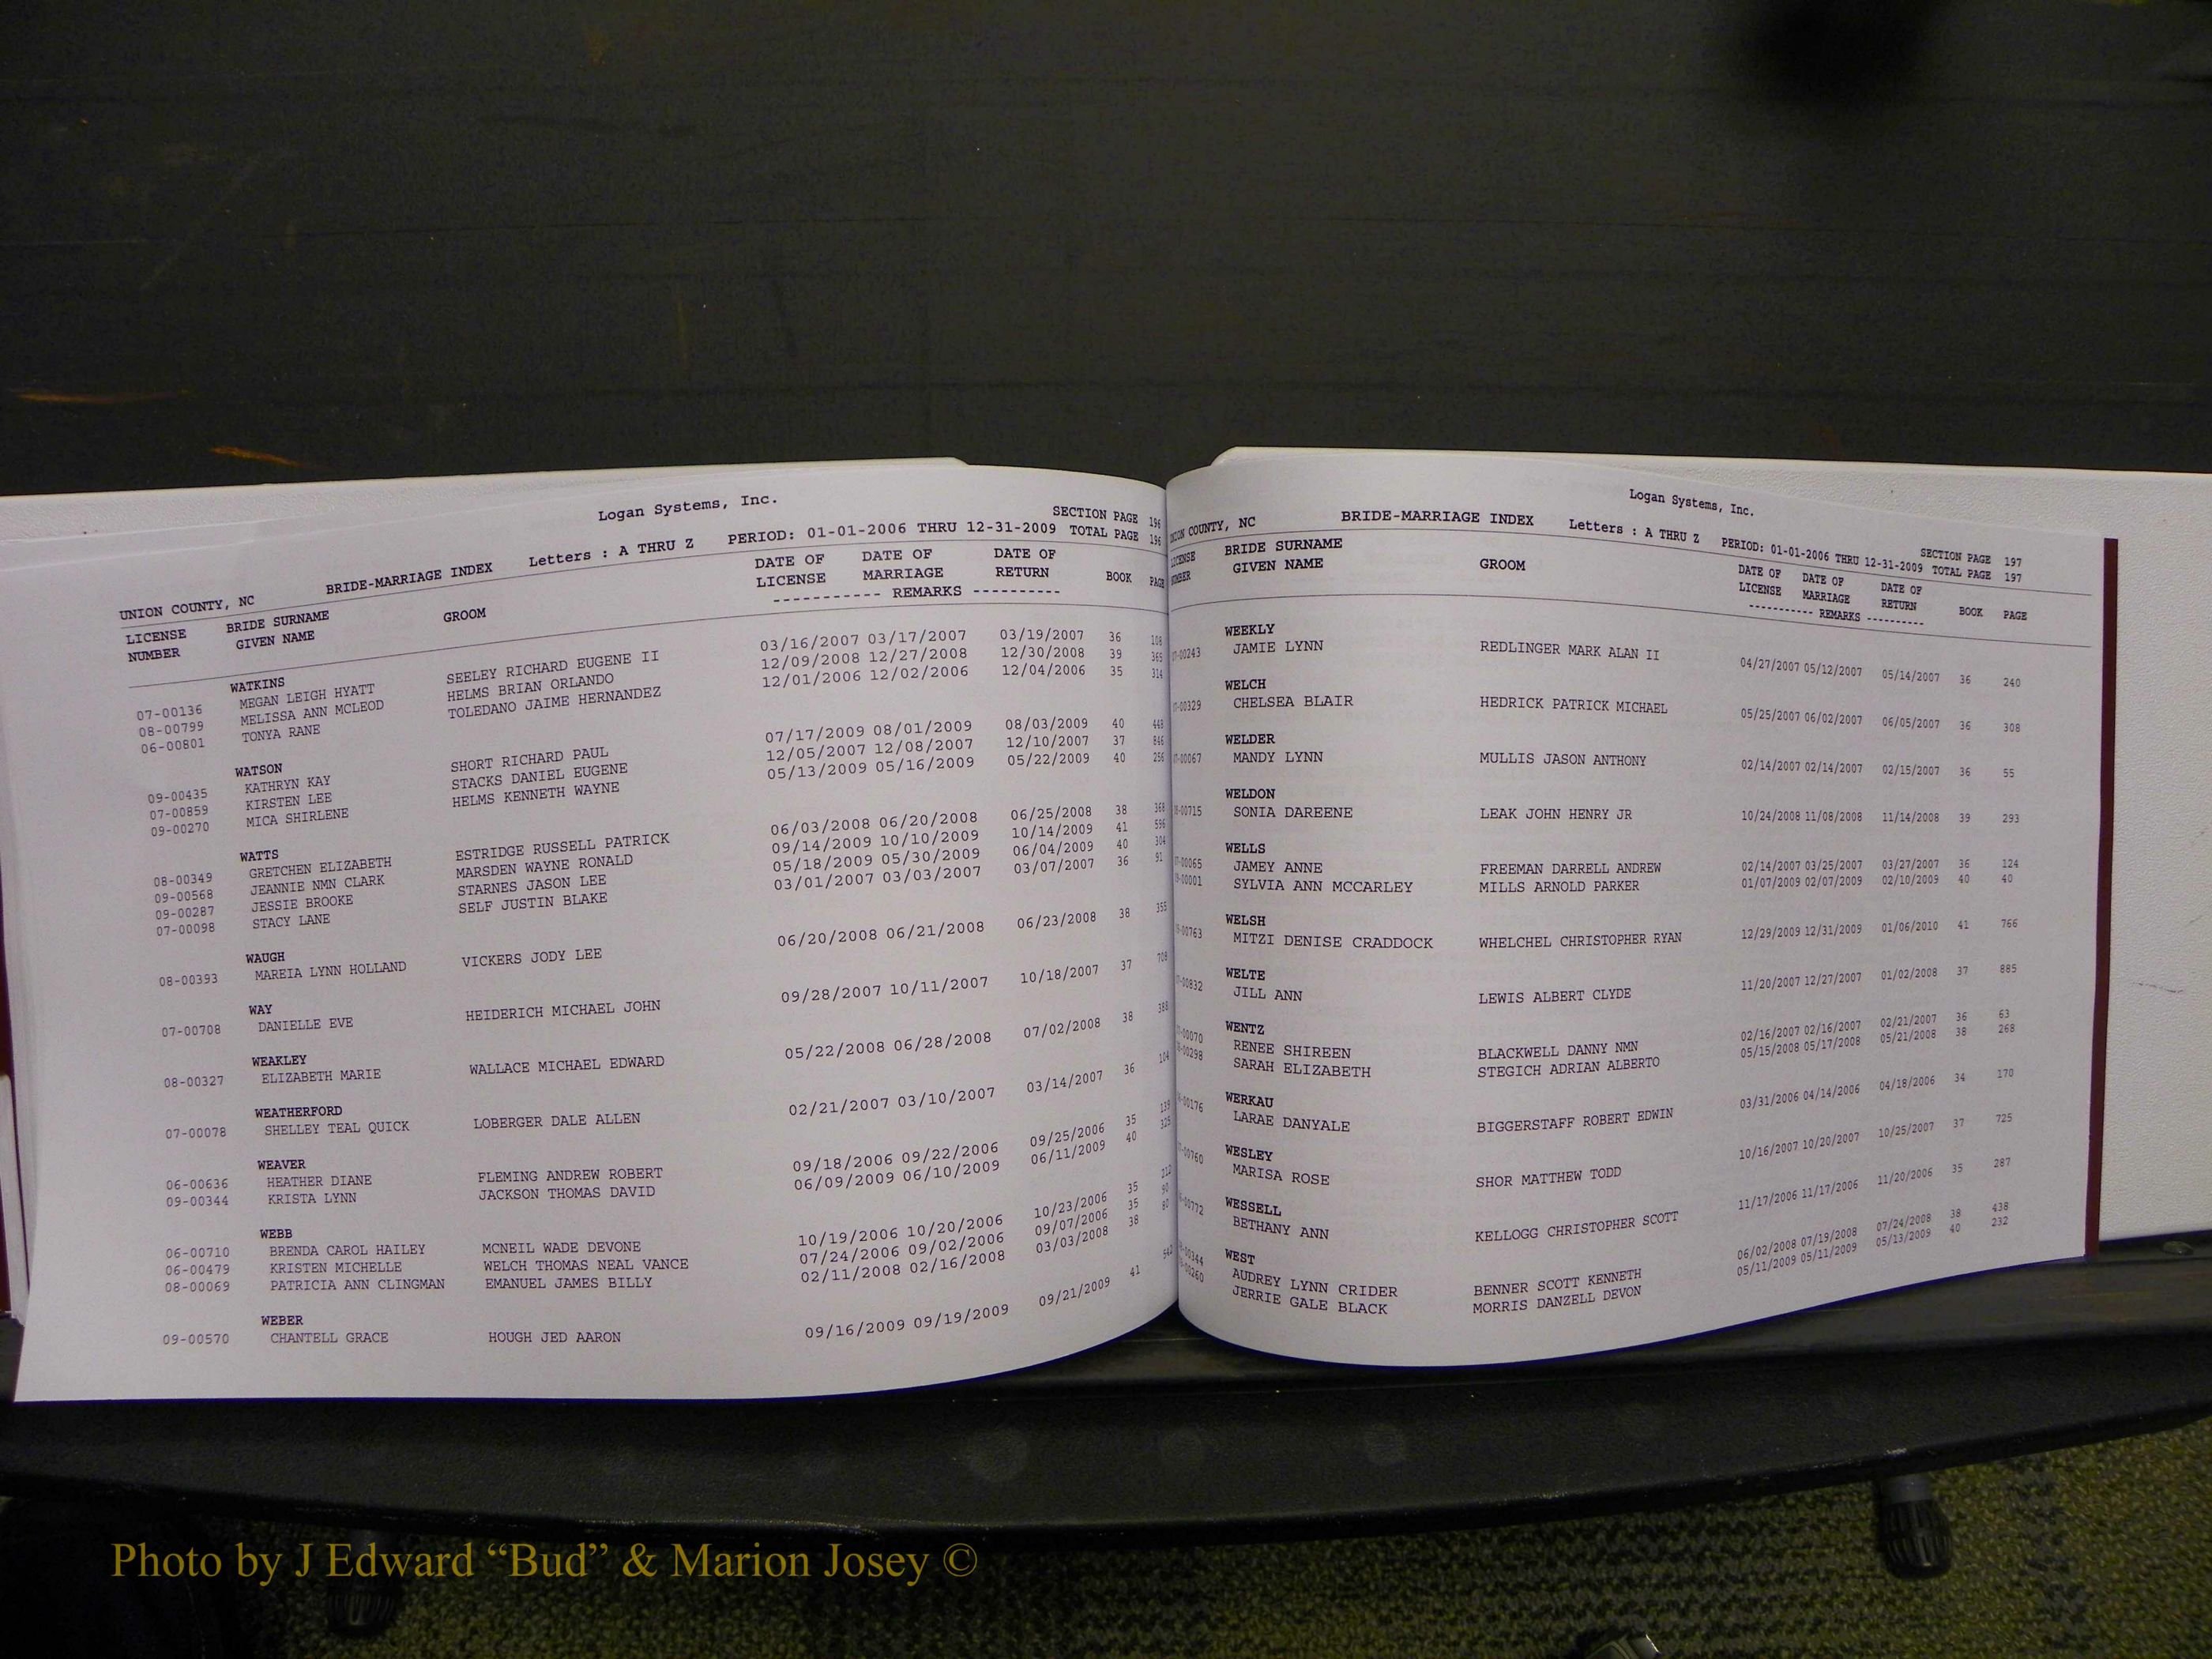 Logan Systems, Inc.
SECTION PAGE 196
UNION COUNTY, NC BRIDE-MARRIAGE INDEX Letters : A THRU Z PERIOD: 01-01-2006 THRU 12-31-2009 TOTAL PAGE 196
LICENSE BRIDE SURNAME GROOM DATE OF DATE OF DATE OF
NUMBER GIVEN NAME LICENSE MARRIAGE RETURN BOOK PAGE
----------- REMARKS ----------
WATKINS
07-00136 MEGAN LEIGH HYATT SEELEY RICHARD EUGENE II 03/16/2007 03/17/2007 03/19/2007 36 108
08-00799 MELISSA ANN MCLEOD HELMS BRIAN ORLANDO 12/09/2008 12/27/2008 12/30/2008 39 365
06-00801 TONYA RANE TOLEDANO JAIME HERNANDEZ 12/01/2006 12/02/2006 12/04/2006 35 314
WATSON
09-00435 KATHRYN KAY SHORT RICHARD PAUL 07/17/2009 08/01/2009 08/03/2009 40 443
07-00859 KIRSTEN LEE STACKS DANIEL EUGENE 12/05/2007 12/08/2007 12/10/2007 37 846
09-00270 MICA SHIRLENE HELMS KENNETH WAYNE 05/13/2009 05/16/2009 05/22/2009 40 256
WATTS
08-00349 GRETCHEN ELIZABETH ESTRIDGE RUSSELL PATRICK 06/03/2008 06/20/2008 06/25/2008 38 368
09-00568 JEANNIE NMN CLARK MARSDEN WAYNE RONALD 09/14/2009 10/10/2009 10/14/2009 41 596
09-00287 JESSIE BROOKE STARNES JASON LEE 05/18/2009 05/30/2009 06/04/2009 40 304
07-00098 STACY LANE SELF JUSTIN BLAKE 03/01/2007 03/03/2007 03/07/2007 36 91
WAUGH
08-00393 MAREIA LYNN HOLLAND VICKERS JODY LEE 06/20/2008 06/21/2008 06/23/2008 38 355
WAY
07-00708 DANIELLE EVE HEIDERICH MICHAEL JOHN 09/28/2007 10/11/2007 10/18/2007 37 708
WEAKLEY
08-00327 ELIZABETH MARIE WALLACE MICHAEL EDWARD 05/22/2008 06/28/2008 07/02/2008 38 388
WEATHERFORD
07-00078 SHELLEY TEAL QUICK LOBERGER DALE ALLEN 02/21/2007 03/10/2007 03/14/2007 36 104
WEAVER
06-00636 HEATHER DIANE FLEMING ANDREW ROBERT 09/18/2006 09/22/2006 09/25/2006 35 139
09-00344 KRISTA LYNN JACKSON THOMAS DAVID 06/09/2009 06/10/2009 06/11/2009 40 325
WEBB
06-00710 BRENDA CAROL HAILEY MCNEIL WADE DEVONE 10/19/2006 10/20/2006 10/23/2006 35 212
06-00479 KRISTEN MICHELLE WELCH THOMAS NEAL VANCE 07/24/2006 09/02/2006 09/07/2006 35 90
08-00069 PATRICIA ANN CLINGMAN EMANUEL JAMES BILLY 02/11/2008 02/16/2008 03/03/2008 38 80
WEBER
09-00570 CHANTELL GRACE HOUGH JED AARON 09/16/2009 09/19/2009 09/21/2009 41 542
Logan Systems, Inc.
SECTION PAGE 197
COUNTY, NC BRIDE-MARRIAGE INDEX Letters : A THRU Z PERIOD: 01-01-2006 THRU 12-31-2009 TOTAL PAGE 197
BRIDE SURNAME GROOM DATE OF DATE OF DATE OF
GIVEN NAME LICENSE MARRIAGE RETURN BOOK PAGE
----------- REMARKS ----------
WEEKLY
-00243 JAMIE LYNN REDLINGER MARK ALAN II 04/27/2007 05/12/2007 05/14/2007 36 240
WELCH
-00329 CHELSEA BLAIR HEDRICK PATRICK MICHAEL 05/25/2007 06/02/2007 06/05/2007 36 308
WELDER
-00067 MANDY LYNN MULLIS JASON ANTHONY 02/14/2007 02/14/2007 02/15/2007 36 55
WELDON
-00715 SONIA DAREENE LEAK JOHN HENRY JR 10/24/2008 11/08/2008 11/14/2008 39 293
WELLS
-00065 JAMEY ANNE FREEMAN DARRELL ANDREW 02/14/2007 03/25/2007 03/27/2007 36 124
-00001 SYLVIA ANN MCCARLEY MILLS ARNOLD PARKER 01/07/2009 02/07/2009 02/10/2009 40 40
WELSH
-00763 MITZI DENISE CRADDOCK WHELCHEL CHRISTOPHER RYAN 12/29/2009 12/31/2009 01/06/2010 41 766
WELTE
-00832 JILL ANN LEWIS ALBERT CLYDE 11/20/2007 12/27/2007 01/02/2008 37 885
WENTZ
-00070 RENEE SHIREEN BLACKWELL DANNY NMN 02/16/2007 02/16/2007 02/21/2007 36 63
-00298 SARAH ELIZABETH STEGICH ADRIAN ALBERTO 05/15/2008 05/17/2008 05/21/2008 38 268
WERKAU
-00176 LARAE DANYALE BIGGERSTAFF ROBERT EDWIN 03/31/2006 04/14/2006 04/18/2006 34 170
WESLEY
-00760 MARISA ROSE SHOR MATTHEW TODD 10/16/2007 10/20/2007 10/25/2007 37 725
WESSELL
-00772 BETHANY ANN KELLOGG CHRISTOPHER SCOTT 11/17/2006 11/17/2006 11/20/2006 35 287
WEST
-00344 AUDREY LYNN CRIDER BENNER SCOTT KENNETH 06/02/2008 07/19/2008 07/24/2008 38 438
-00260 JERRIE GALE BLACK MORRIS DANZELL DEVON 05/11/2009 05/11/2009 05/13/2009 40 232
Photo by J Edward “Bud” & Marion Josey ©